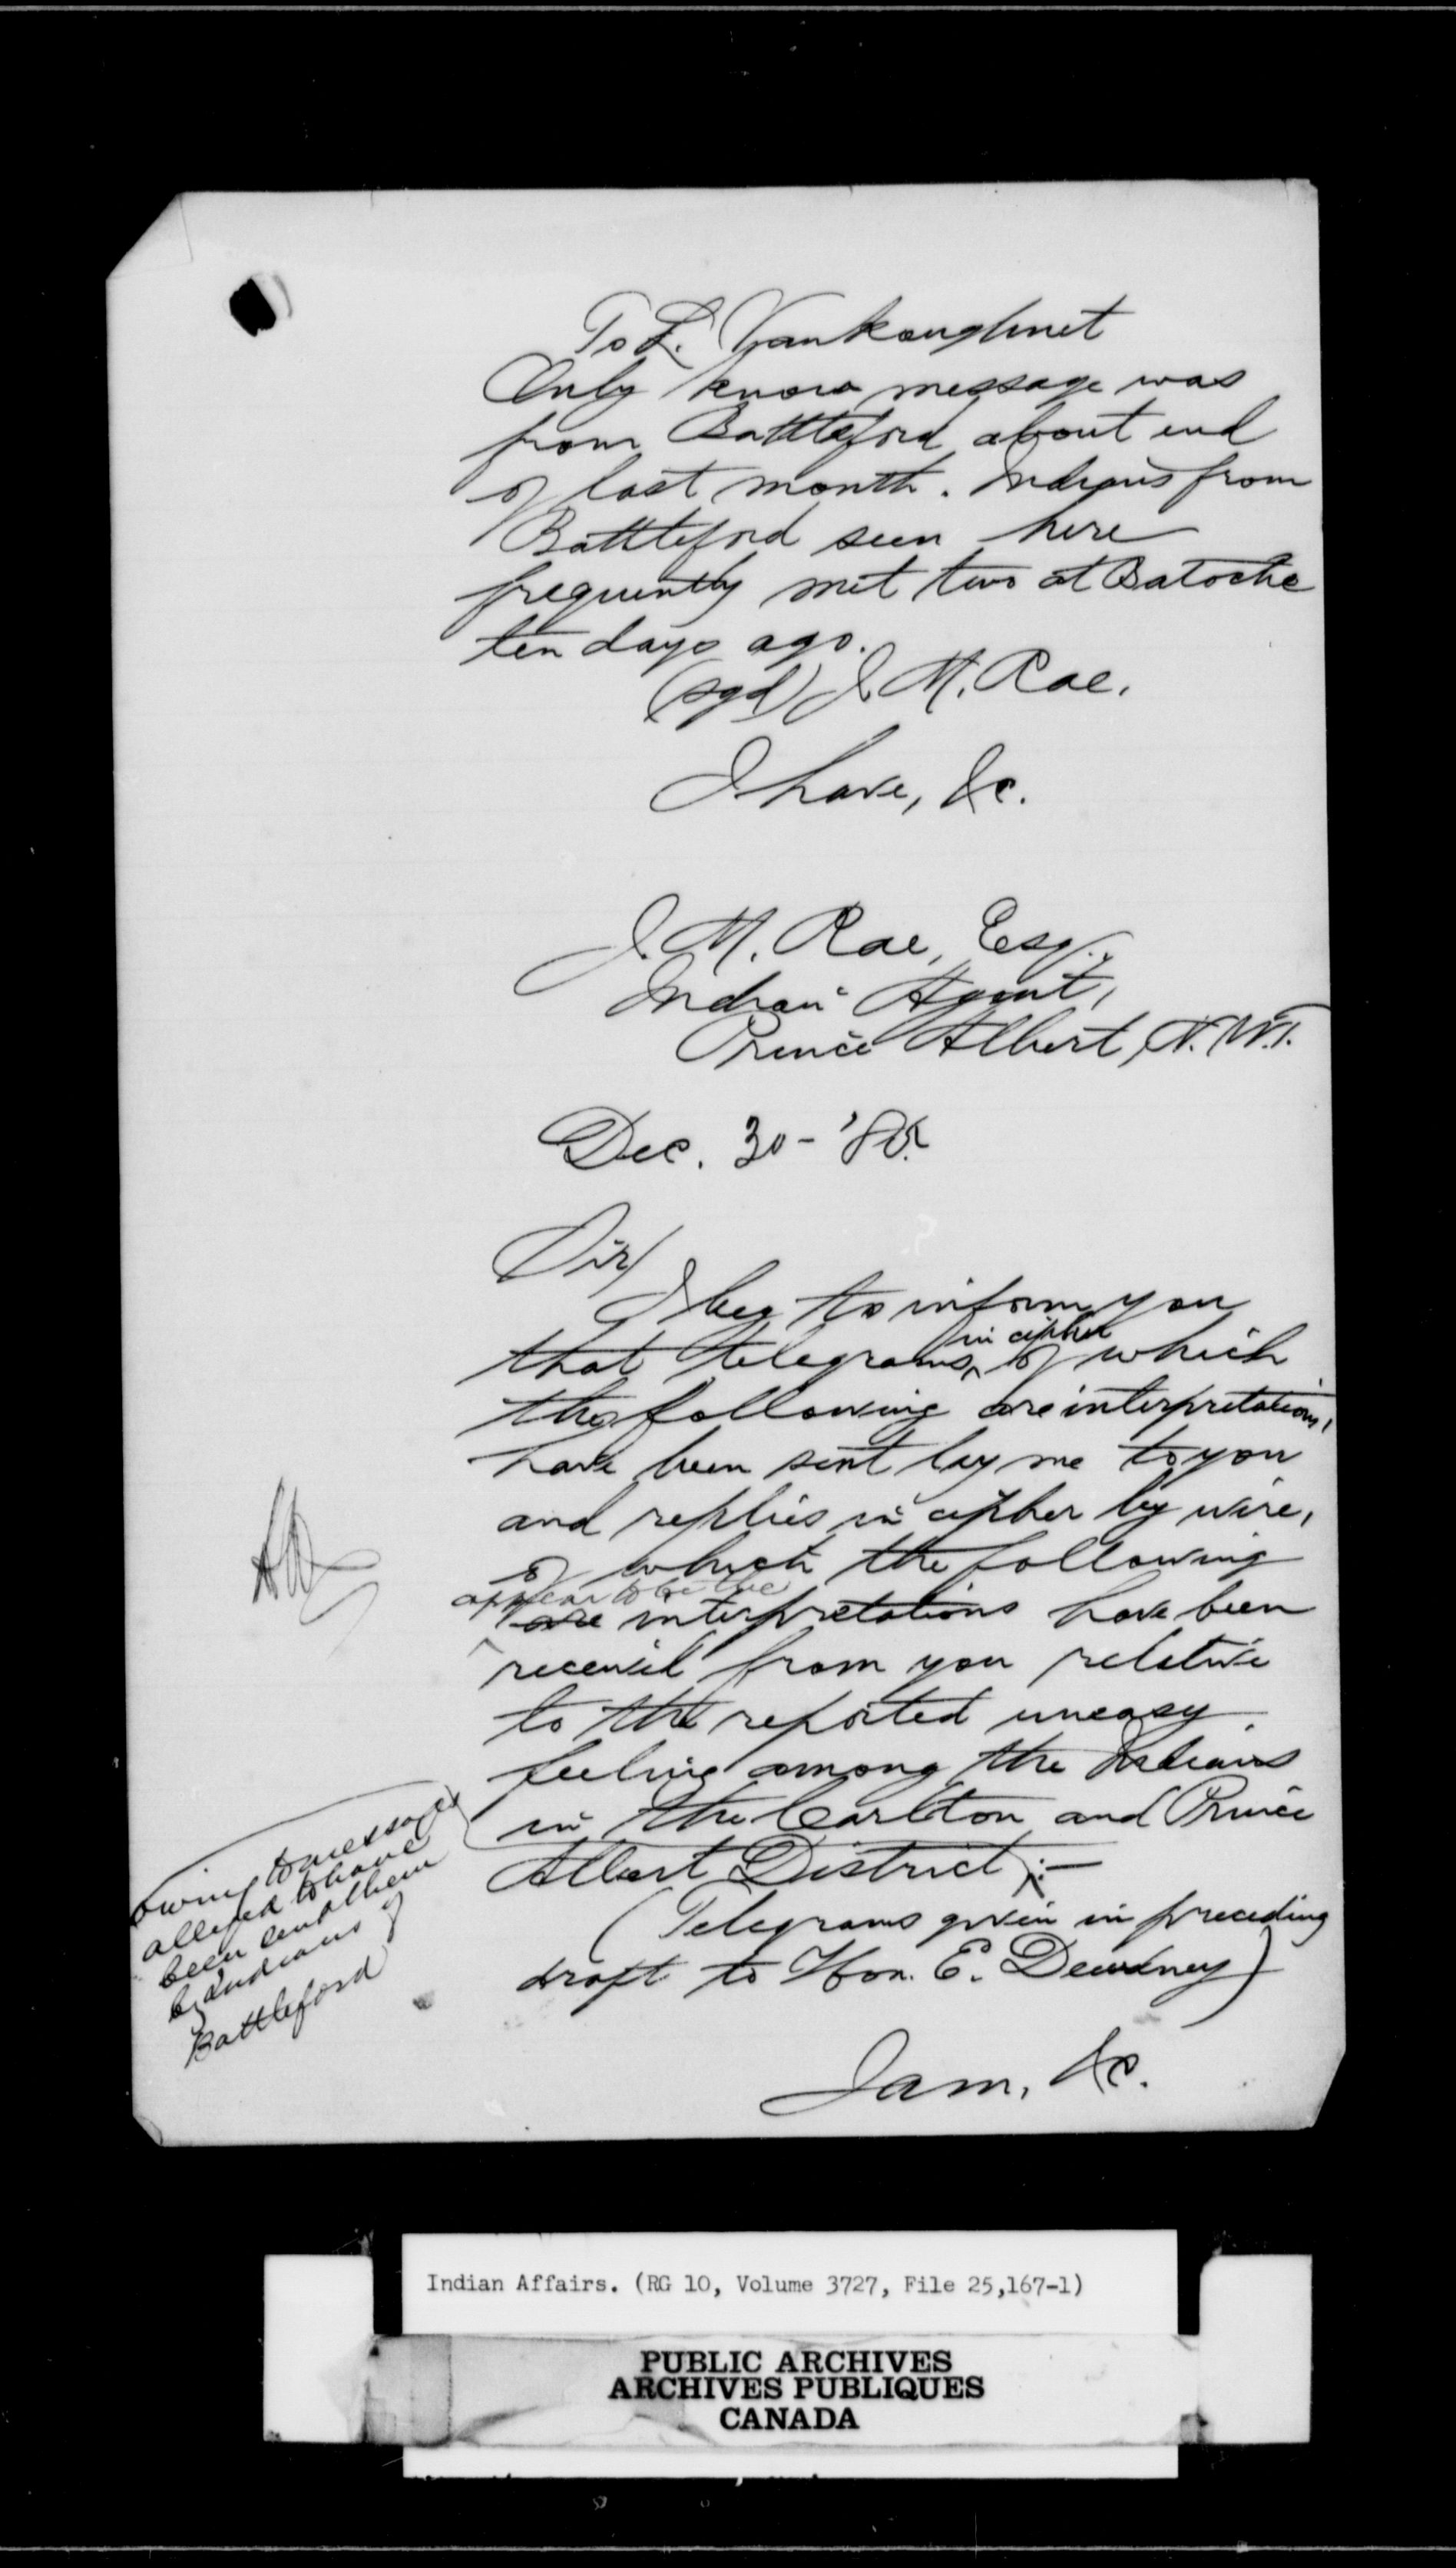 To L. Vankoughnet
Only know message was
from Battleford about end
of last month. Indians from
Battleford seen here
frequently met two at Batoche
ten days ago.
(sgd) J. M. Rae.
I have, &c.
J. M. Rae, Esq.,
Indian Agent,
Prince Albert, N.W.T.
Dec. 30 - '85.
Sir/
I beg to inform you
in cipher
that telegrams, of which
the following are interpretations,
have been sent by me to you
and replies in cipher by wire,
of which the following
appear to be the
are interpretations have been
received from you relative
to the reported uneasy
feeling among the Indians
in the Carlton and Prince
Albert District :—
owing to messages
alleged to have
been sent them
by Indians of
Battleford
(Telegrams given in preceding
draft to Hon. E. Dewdney)
I am, &c.
Indian Affairs. (RG 10, Volume 3727, File 25,167-1)
PUBLIC ARCHIVES
ARCHIVES PUBLIQUES
CANADA